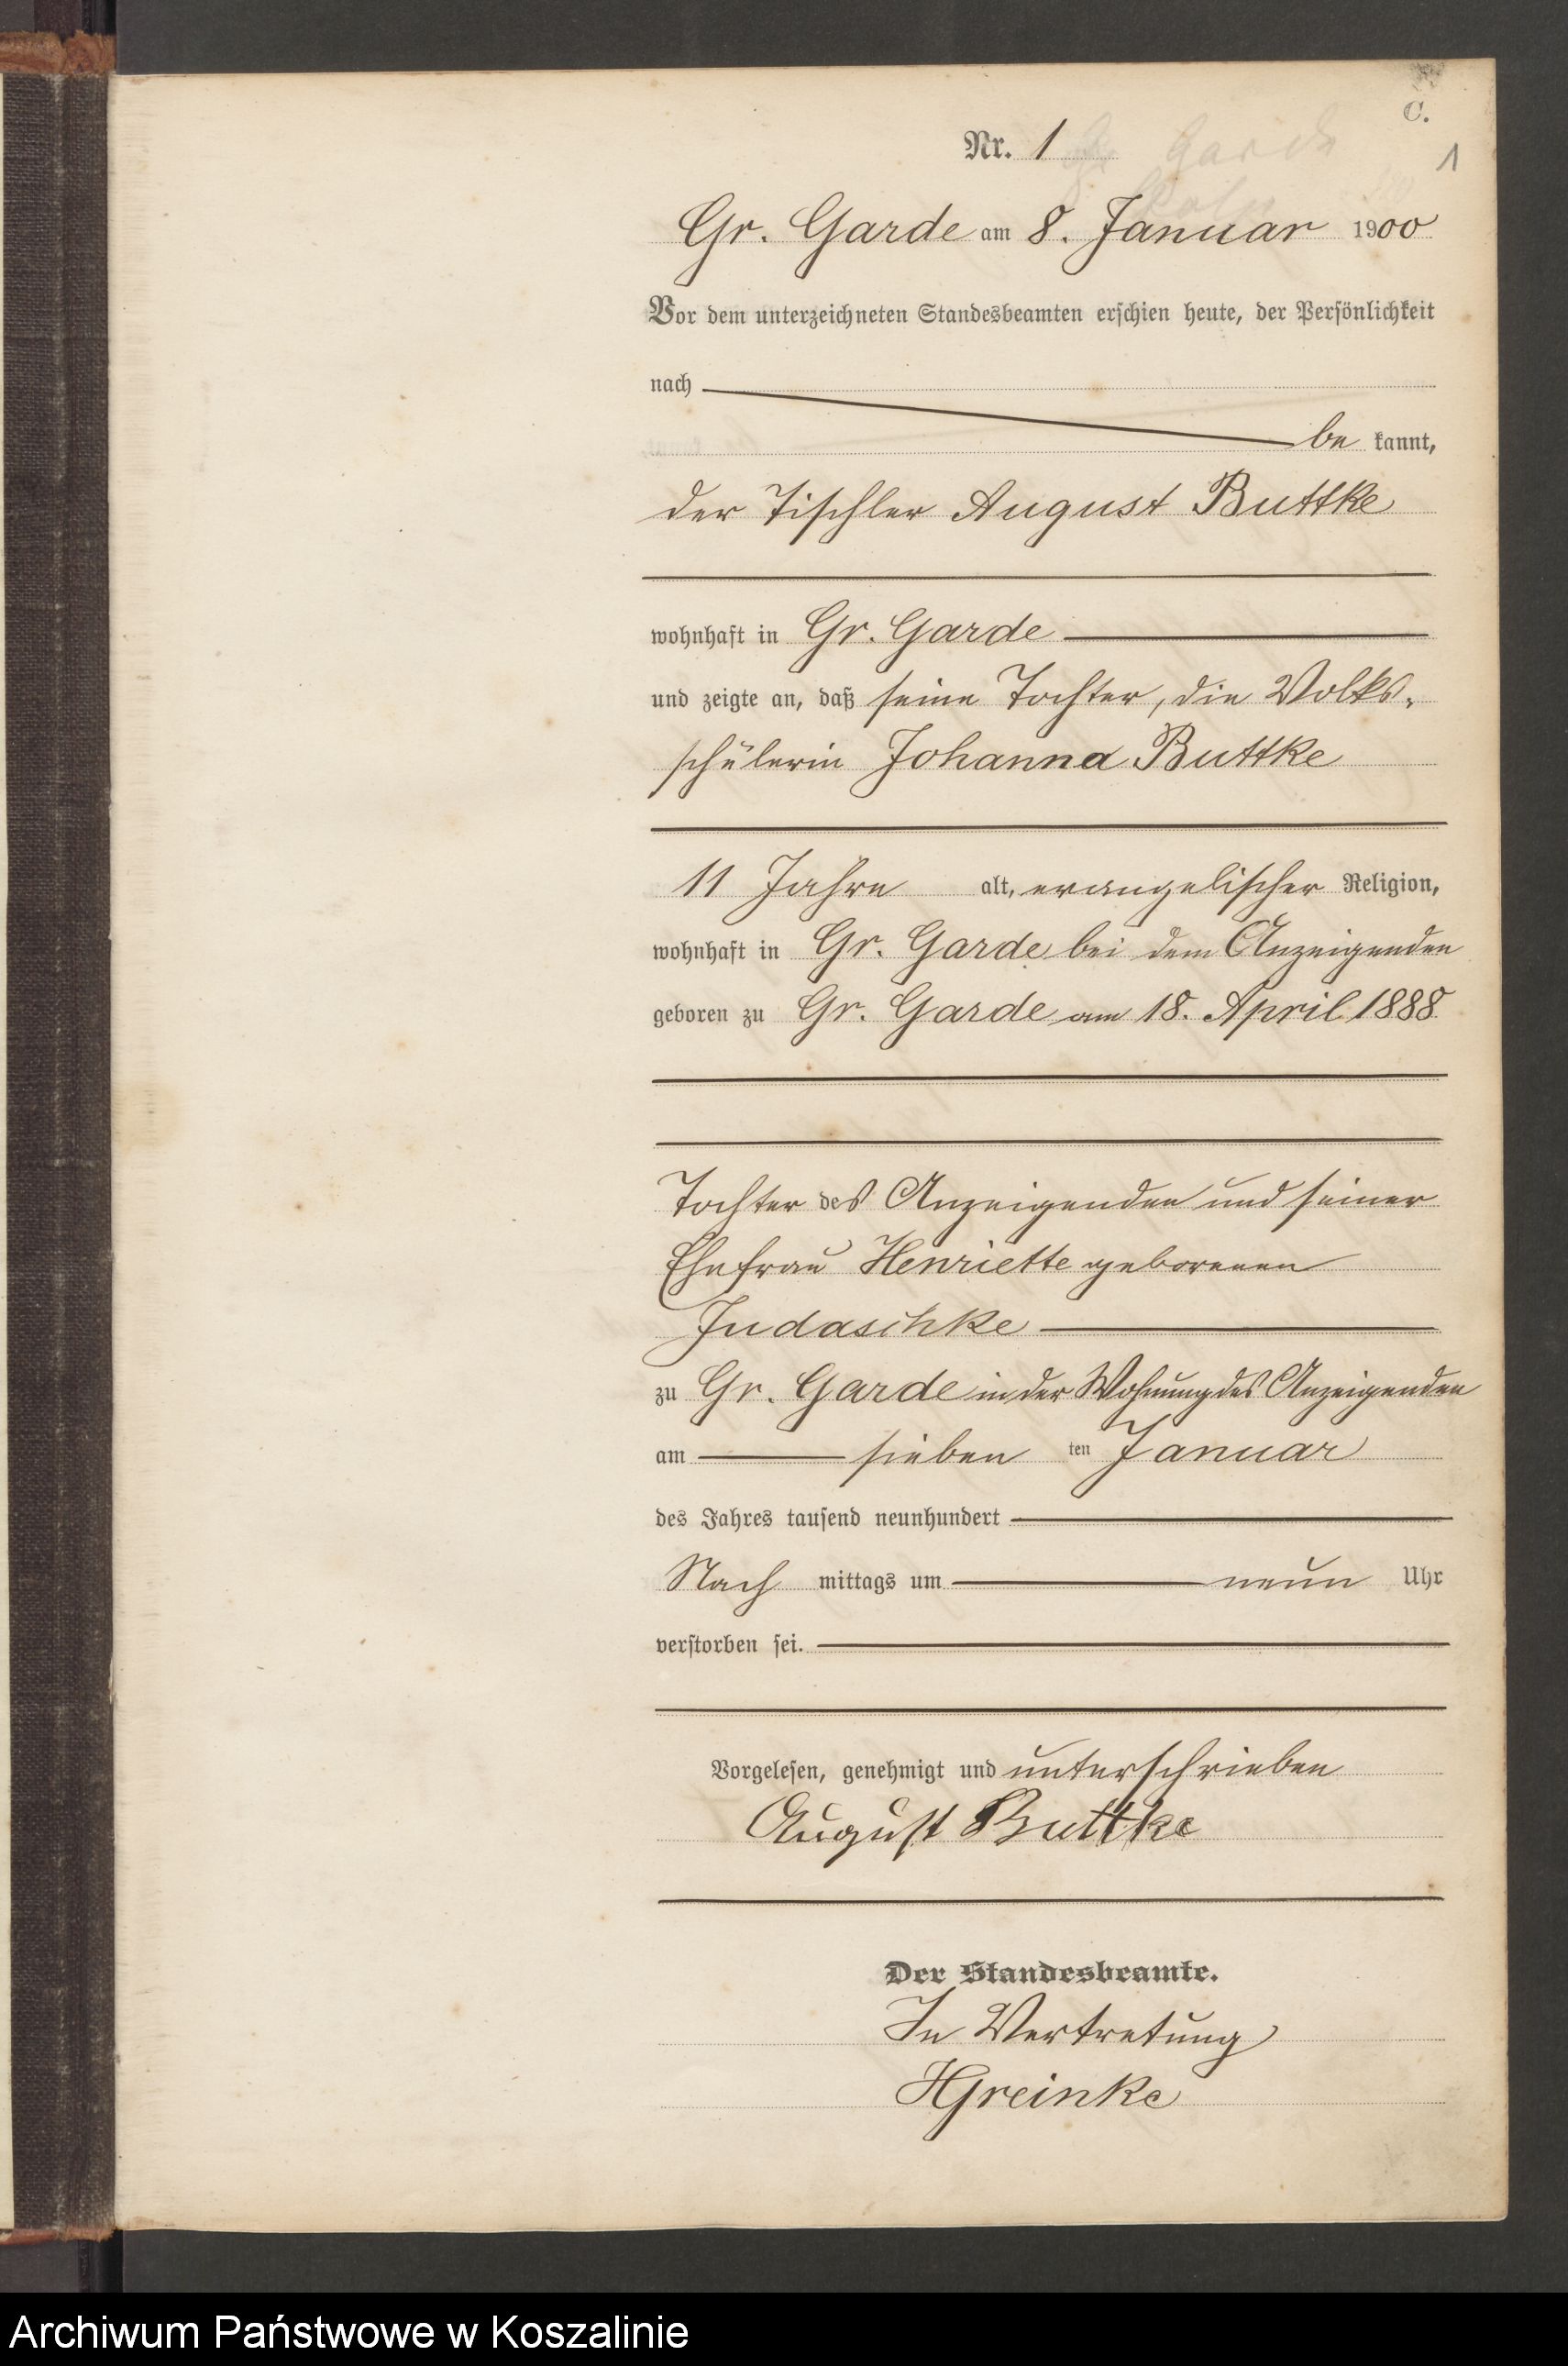 C.
Nr. 1
1
Gr. Garde am 8. Januar 1900
Vor dem unterzeichneten Standesbeamten erschien heute, der Persönlichkeit
nach
be kannt,
der Tischler August Buttke
wohnhaft in Gr. Garde
und zeigte an, daß seine Tochter, die Volks-
schülerin Johanna Buttke
11 Jahre alt, evangelischer Religion,
wohnhaft in Gr. Garde bei dem Anzeigenden
geboren zu Gr. Garde am 18. April 1888
Tochter des Anzeigenden und seiner
Ehefrau Henriette geborenen
Judaschke
zu Gr. Garde in der Wohnung des Anzeigenden
am sieben ten Januar
des Jahres tausend neunhundert
Nach mittags um neun Uhr
verstorben sei.
Vorgelesen, genehmigt und unterschrieben
August Buttke
Der Standesbeamte.
In Vertretung
HGreinke
Archiwum Państwowe w Koszalinie